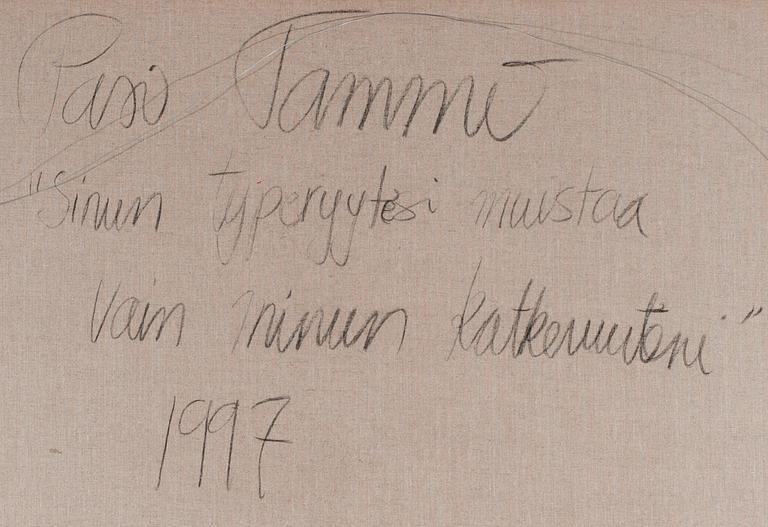 Pasi Tammi
"Sinun typeryytesi muistaa
vain minun katkeruuteni"
1997